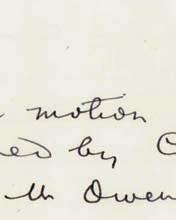 motion
ed by C
M Owen